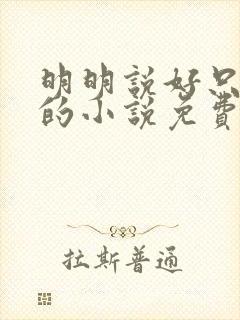 明明說好只
的小說免費
拉斯普通